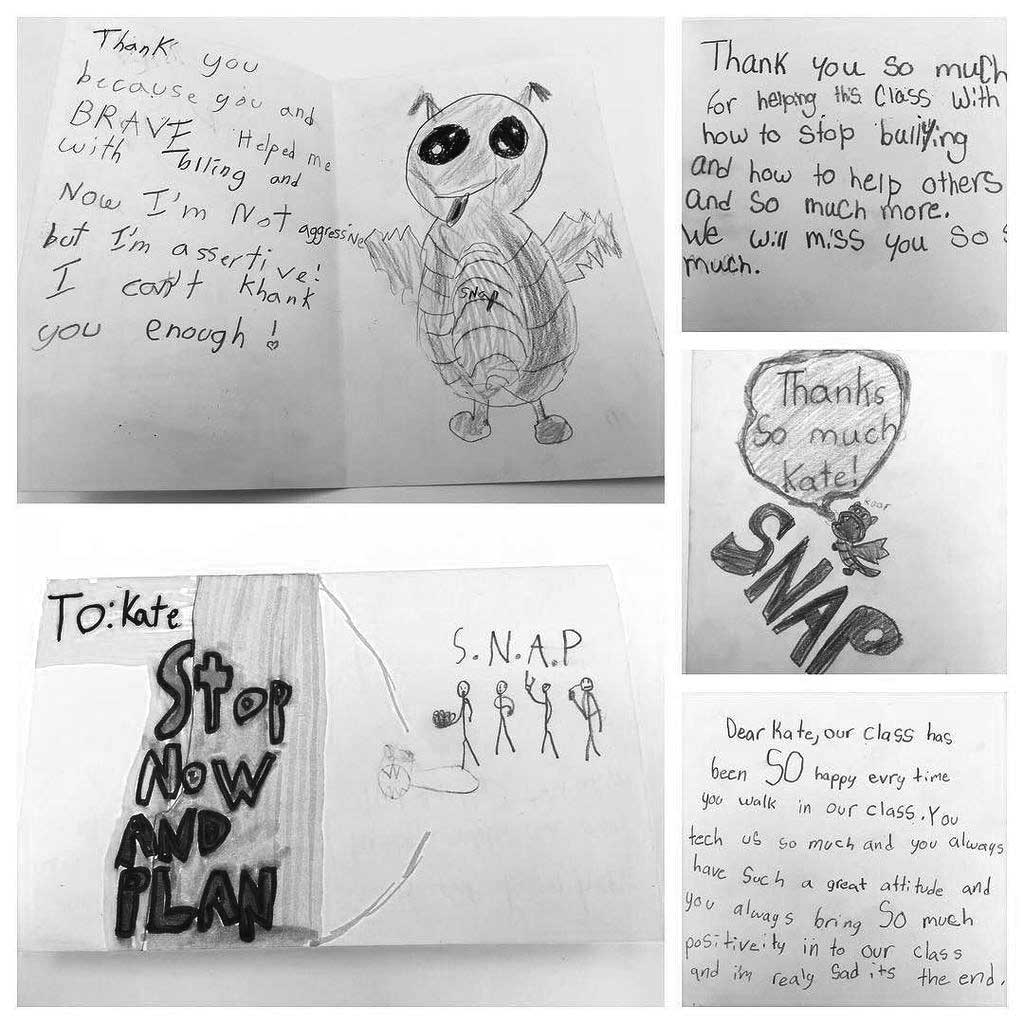 Thank you
because you and
BRAVE Helped me
with blling and
Now I'm Not aggressive
but I'm assertive!
I can't khank
you enough!
SNap
Thank you so much
for helping this Class with
how to stop bullying
and how to help others
and so much more.
We will miss you so s
much.
Thanks
So much
Kate!
Roar
SNAP
To: Kate
Stop
Now
AND
PLAN
S.N.A.P
Dear Kate, our class has
been SO happy evry time
you walk in our class. You
tech us so much and you always
have such a great attitude and
you always bring So much
positiveity in to our class
and im realy sad its the end.